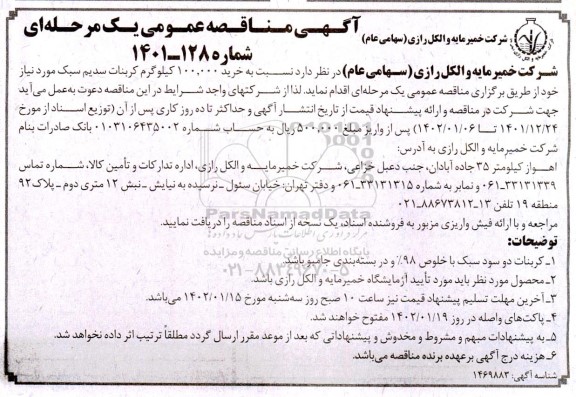 آگهی مناقصه عمومی یک مرحله‌ای
شماره ۱۲۸-۱۴۰۱
شرکت خمیرمایه و الکل رازی (سهامی عام)
شرکت خمیرمایه و الکل رازی (سهامی عام) در نظر دارد نسبت به خرید ۱۰۰,۰۰۰ کیلوگرم کربنات سدیم سبک مورد نیاز
خود از طریق برگزاری مناقصه عمومی یک مرحله‌ای اقدام نماید. لذا از شرکتهای واجد شرایط در این مناقصه دعوت به‌عمل می‌آید
جهت شرکت در مناقصه و ارائه پیشنهاد قیمت از تاریخ انتشار آگهی و حداکثر تا ده روز کاری پس از آن (توزیع اسناد از مورخ
۱۴۰۱/۱۲/۲۴ تا ۱۴۰۲/۰۱/۰۶) پس از واریز مبلغ ۵۰۰,۰۰۰ ریال به حساب شماره ۰۱۰۳۱۰۶۴۳۵۰۰۲ بانک صادرات بنام
شرکت خمیرمایه و الکل رازی به آدرس:
اهواز کیلومتر ۳۵ جاده آبادان، جنب دعبل خزاعی، شرکت خمیرمایه و الکل رازی، اداره تدارکات و تأمین کالا، شماره تماس
۰۶۱-۳۳۱۳۱۳۳۹ و نمابر به شماره ۰۶۱-۳۳۱۳۱۳۱۵ و دفتر تهران: خیابان سئول - نرسیده به نیایش - نبش ۱۲ متری دوم - پلاک ۹۲
منطقه ۱۹ تلفن ۱۳-۰۲۱-۸۸۶۷۳۸۱۲
مراجعه و با ارائه فیش واریزی مزبور به فروشنده اسناد، یک نسخه از اسناد مناقصه را دریافت نمایید.
ParsNamadData
پایگاه اطلاع رسانی مناقصه و مزایده
۰۲۱-۸۸۳۴۹۶۷۰-۵
توضیحات:
۱- کربنات دو سود سبک با خلوص ۹۸٪ و در بسته‌بندی جامبو باشد.
۲- محصول مورد نظر باید مورد تأیید آزمایشگاه خمیرمایه و الکل رازی باشد.
۳- آخرین مهلت تسلیم پیشنهاد قیمت نیز ساعت ۱۰ صبح روز سه‌شنبه مورخ ۱۴۰۲/۰۱/۱۵ می‌باشد.
۴- پاکت‌های واصله در روز ۱۴۰۲/۰۱/۱۹ مفتوح خواهند شد.
۵- به پیشنهادات مبهم و مشروط و مخدوش و پیشنهاداتی که بعد از موعد مقرر ارسال گردد مطلقاً ترتیب اثر داده نخواهد شد.
۶- هزینه درج آگهی برعهده برنده مناقصه می‌باشد.
شناسه آگهی: ۱۴۶۹۸۸۳